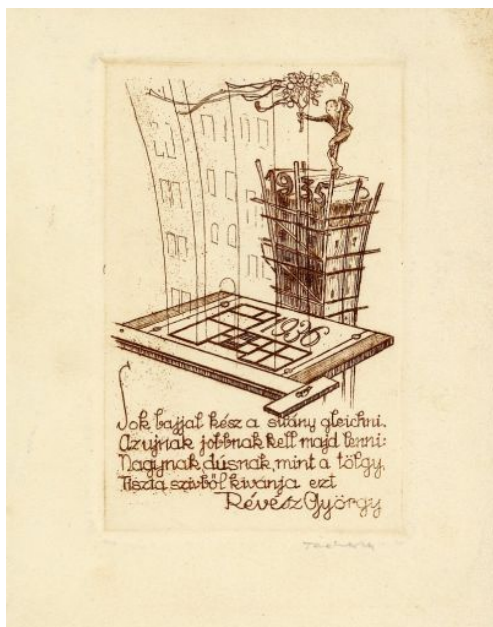 1935
1936
Sok bajjal kész a silány gleichni.
Az ujnak jobbnak kell majd lenni:
Nagynak, dúsnak, mint a tölgy,
Tiszta szivből kivánja ezt
Révész György